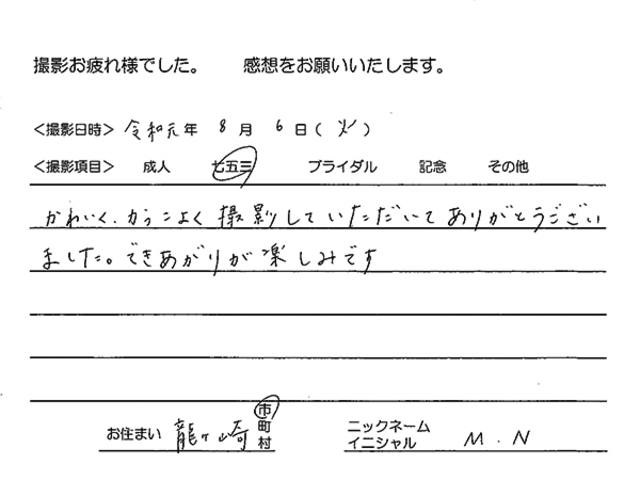 撮影お疲れ様でした。 感想をお願いいたします。
<撮影日時> 令和元年 8月 6日(火)
<撮影項目> 成人 七五三 ブライダル 記念 その他
かわいく、かっこよく撮影していただいてありがとうござい
ました。できあがりが楽しみです
お住まい 龍ヶ崎 市町村 ニックネーム イニシャル M.N